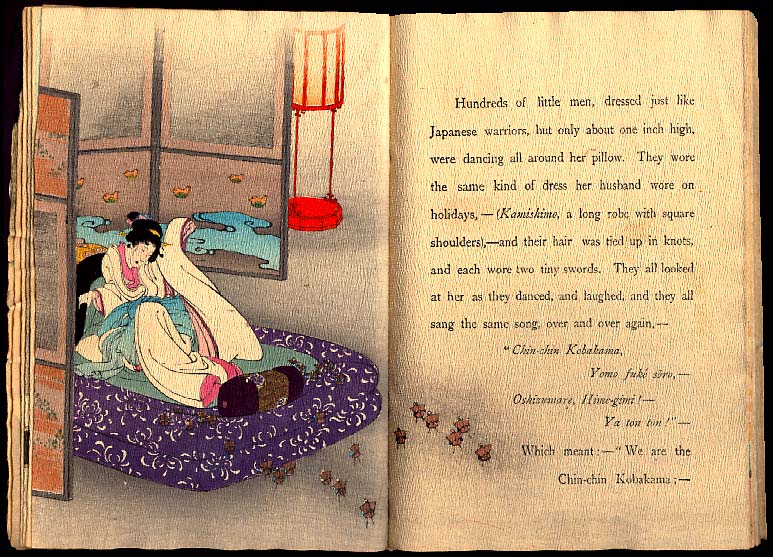 Hundreds of little men, dressed just like
Japanese warriors, but only about one inch high,
were dancing all around her pillow. They wore
the same kind of dress her husband wore on
holidays, — (Kamishimo, a long robe with square
shoulders),—and their hair was tied up in knots,
and each wore two tiny swords. They all looked
at her as they danced, and laughed, and they all
sang the same song, over and over again,—
"Chin-chin Kobakama,
Yomo fuké sōro,—
Oshizumare, Hime-gimi!—
Ya ton ton!"—
Which meant:—"We are the
Chin-chin Kobakama;—